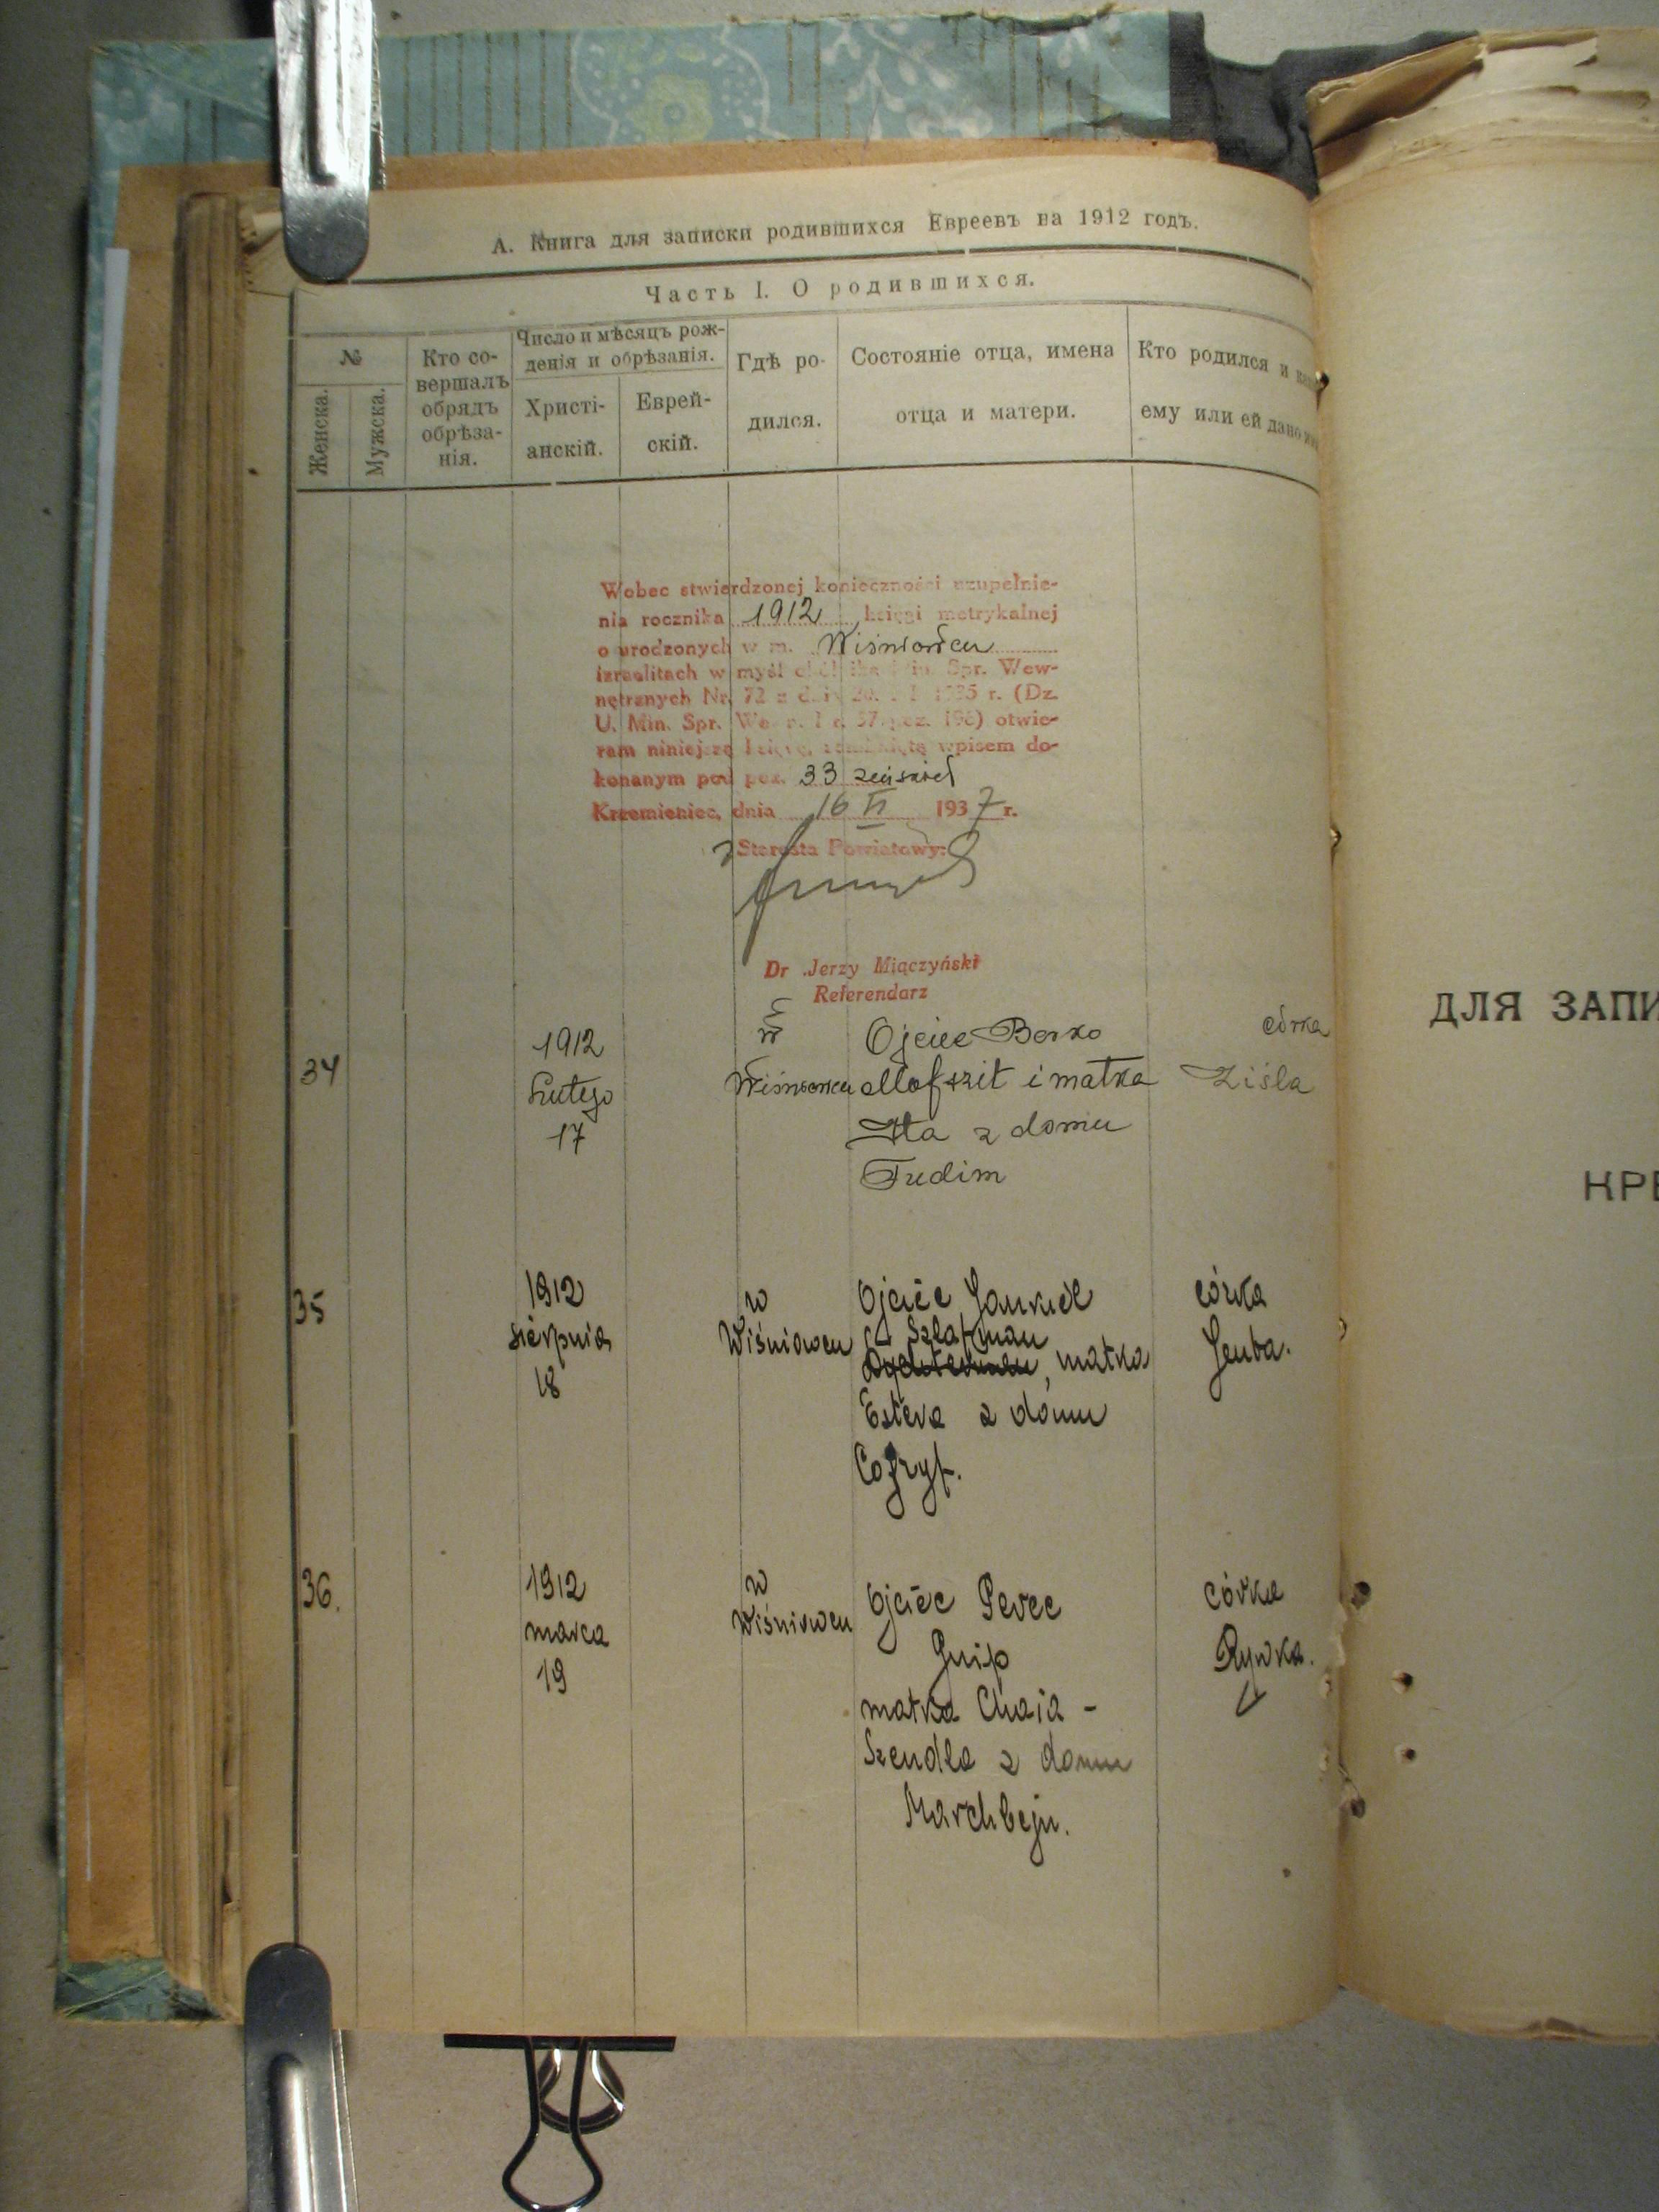 А. Книга для записки родившихся Евреевъ на 1912 годъ.
Часть I. О родившихся.
№
Женска.
Мужска.
Кто со-
вершалъ
обрядъ
обрѣза-
нія.
Число и мѣсяцъ рож-
денія и обрѣзанія.
Христі-
анскій.
Еврей-
скій.
Гдѣ ро-
дился.
Состояніе отца, имена
отца и матери.
Кто родился и
ему или ей дано
Wobec stwierdzonej konieczności uzupełnie-
nia rocznika 1912 księgi metrykalnej
o urodzonych w m. Wiśniowcu
izraelitach w myśl Spr. Wew-
nętrznych Nr. 72 z r. (Dz.
U. Min. Spr. otwie-
ram niniejszą wpisem do-
konanym pod poz. 33
Krzemieniec, dnia 16 VI 1937 r.
Starosta Powiatowy:
Dr Jerzy Miączyński
Referendarz
34
1912
Lutego
17
w
Wiśniowcu
Ojciec Berko
i matka
Ita z domu
Fudim
córka
Ziśla
35
1912
sierpnia
18
w
Wiśniowcu
Ojciec Jankiel
Szlafman
, matka
Estera z domu
córka
36.
1912
marca
19
w
Wiśniowcu
Ojciec Perec
matka Chaja -
Szendla z domu
Marchbejn.
córka
Rywka.
ДЛЯ ЗАПИ
КРЕ